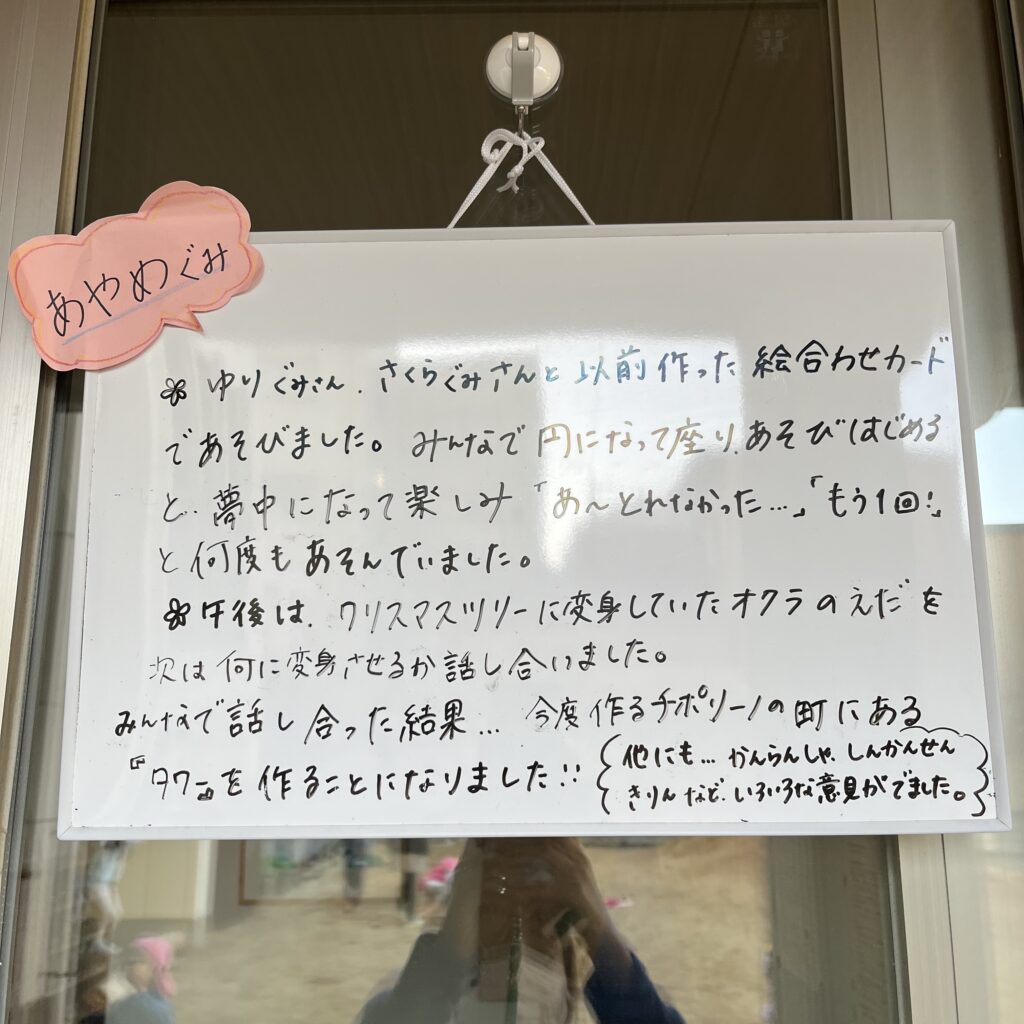 あやめぐみ
❀ ゆりぐみさん、さくらぐみさんと以前作った絵合わせカード
であそびました。みんなで円になって座り、あそびはじめる
と、夢中になって楽しみ「あ〜とれなかった…」「もう1回!」
と何度もあそんでいました。
❀午後は、クリスマスツリーに変身していたオクラのえだを
次は何に変身させるか話し合いました。
みんなで話し合った結果… 今度作るチポリーノの町にある
『タワー』を作ることになりました!!
(他にも… かんらんしゃ、しんかんせん
きりんなど、いろいろな意見がでました。)